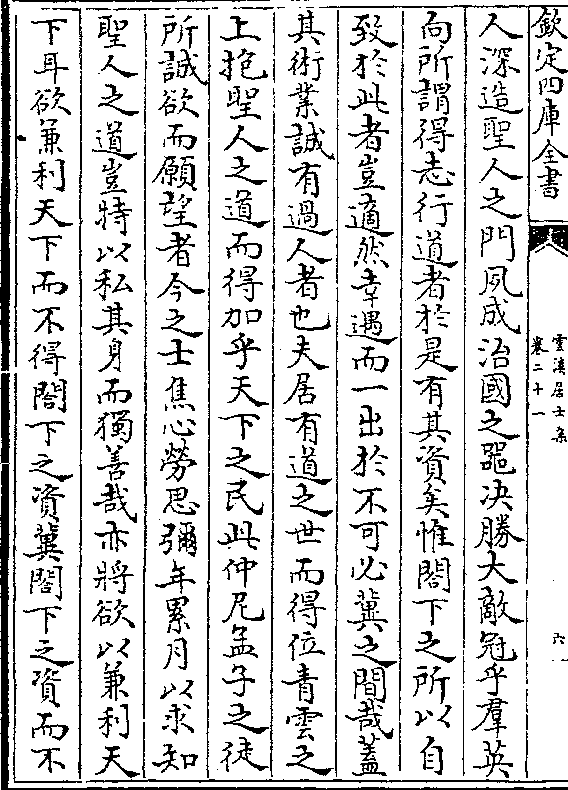 欽定四庫全書
雲溪居士集
卷二十一
六
人深造聖人之門夙成治國之噐决勝大敵冠乎羣英
向所謂得志行道者於是有其資矣惟閤下之所以自
致於此者豈適然幸遇而一出於不可必冀之間哉蓋
其術業誠有過人者也夫居有道之世而得位青雲之
上抱聖人之道而得加乎天下之民此仲尼孟子之徒
所誠欲而願望者今之士焦心勞思彌年累月以求知
聖人之道豈特以私其身而獨善哉亦將欲以兼利天
下耳欲兼利天下而不得閤下之資冀閤下之資而不